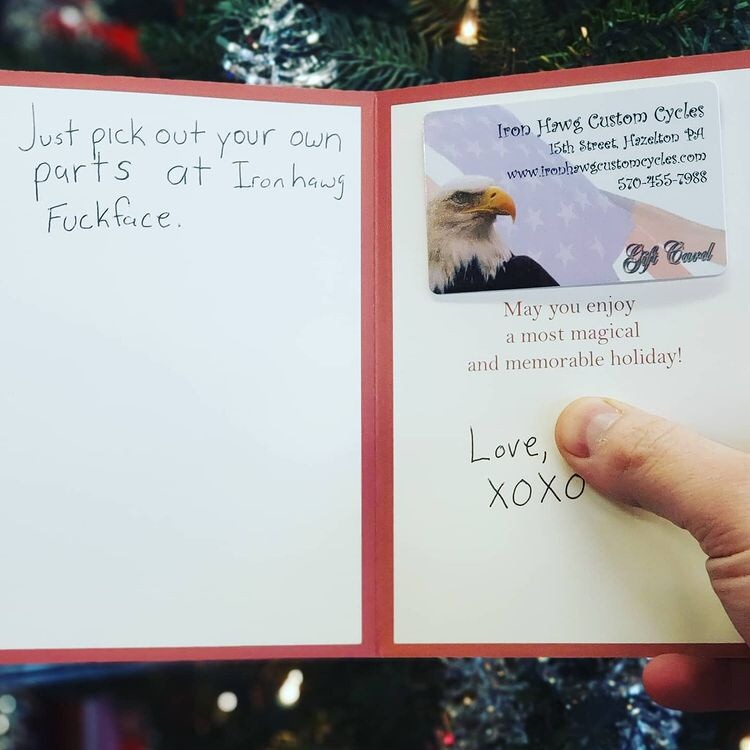 Just pick out your own
parts at Ironhawg
Fuckface.
Iron Hawg Custom Cycles
15th Street, Hazelton PA
www.ironhawgcustomcycles.com
570-455-7988
Gift Card
May you enjoy
a most magical
and memorable holiday!
Love,
XOXO